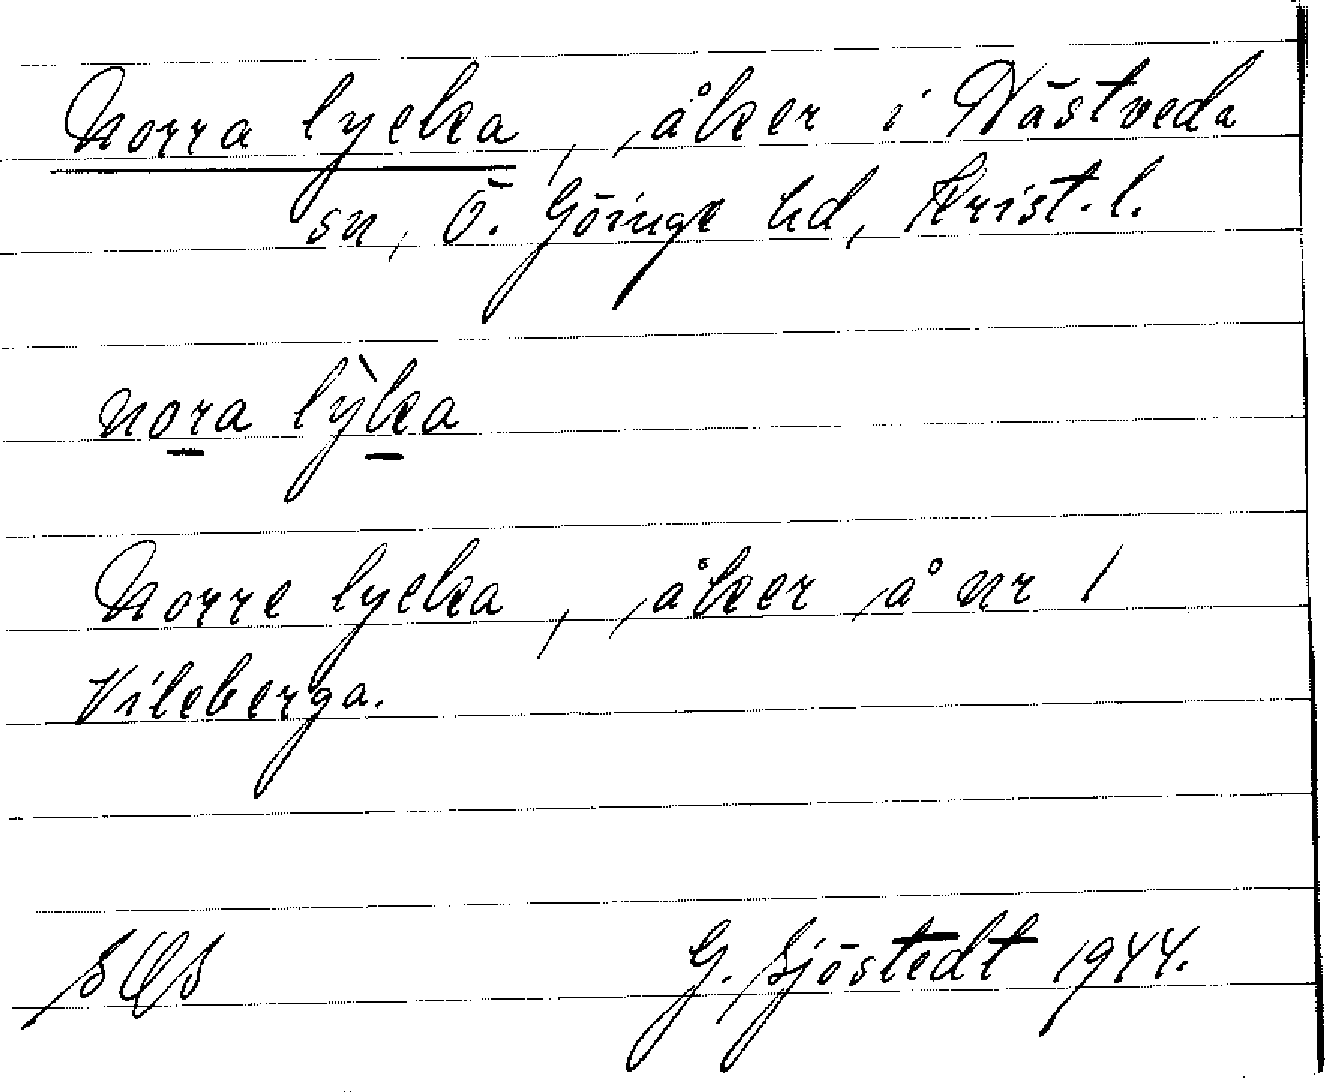 Norra lycka, åker i Nästveda
sn, Ö. Göinge hd, Krist. l.
nora lỳka
Norre lycka, åker å nr 1
Vileberga.
G. Sjöstedt 1944.